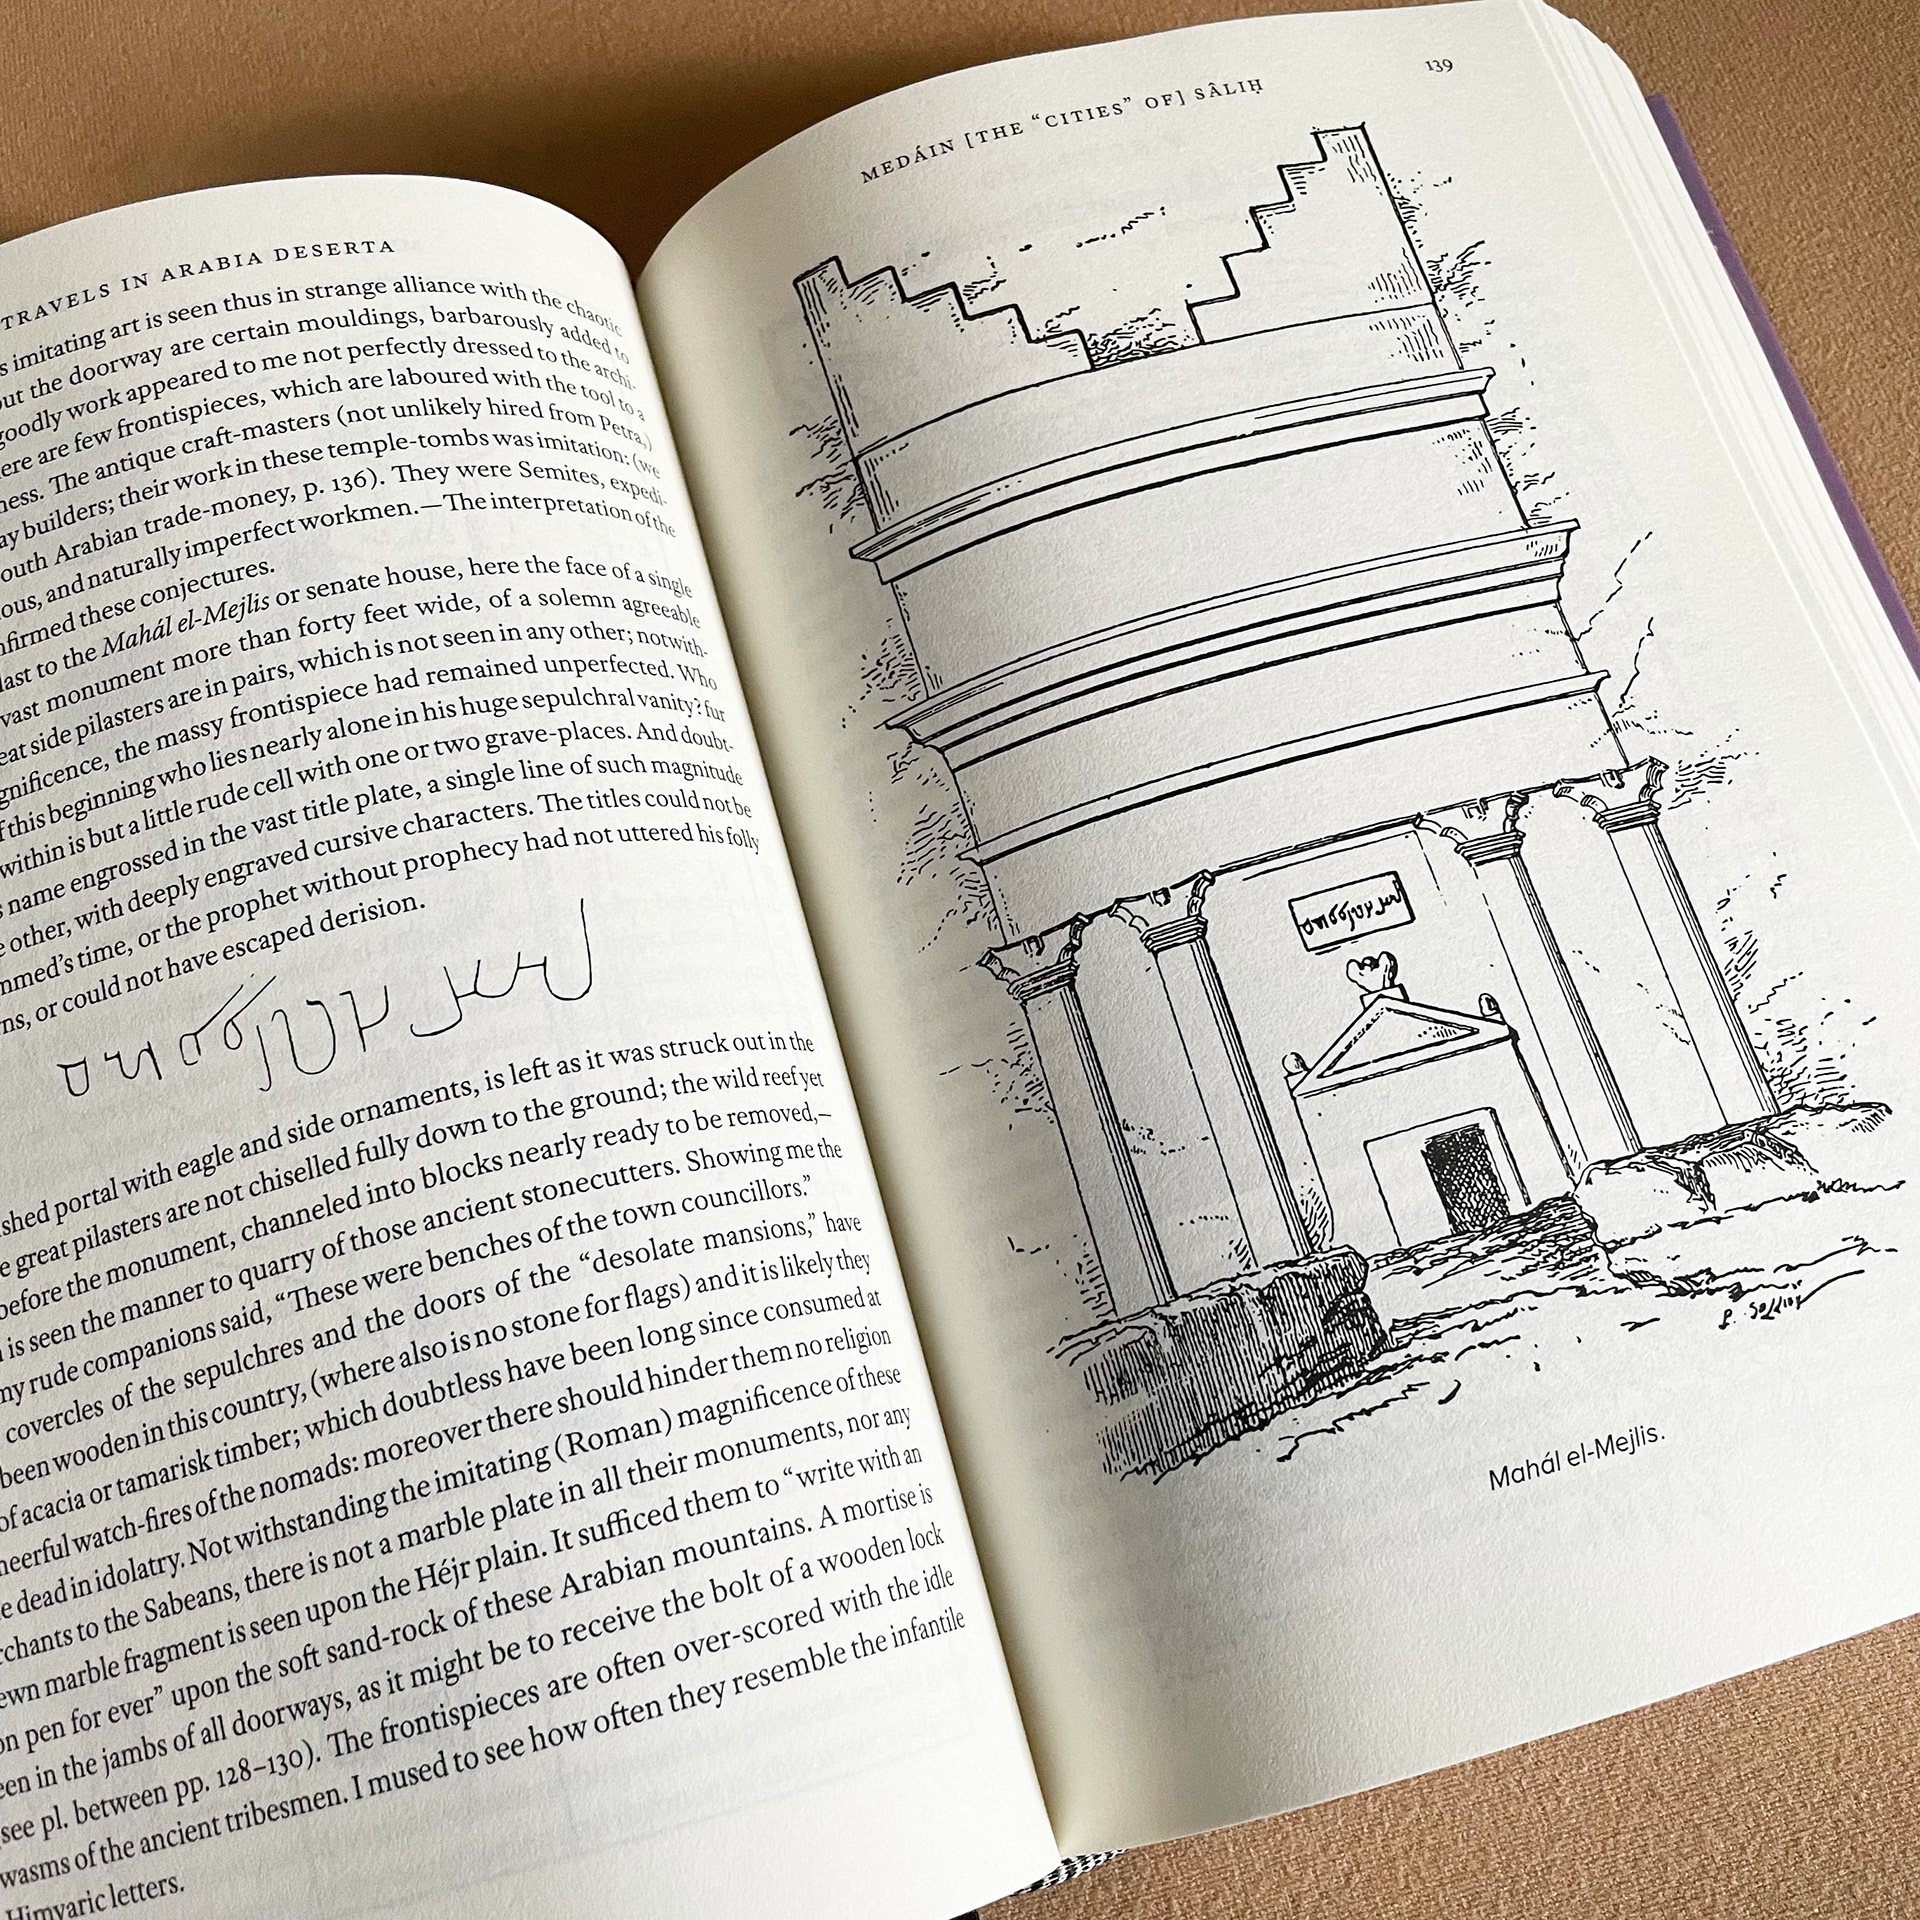 TRAVELS IN ARABIA DESERTA
imitating art is seen thus in strange alliance with the chaotic
the doorway are certain mouldings, barbarously added to
goodly work appeared to me not perfectly dressed to the archi-
are few frontispieces, which are laboured with the tool to a
The antique craft-masters (not unlikely hired from Petra,)
builders; their work in these temple-tombs was imitation: (we
Arabian trade-money, p. 136). They were Semites, expedi-
and naturally imperfect workmen.—The interpretation of the
these conjectures.
last to the Mahál el-Mejlis or senate house, here the face of a single
vast monument more than forty feet wide, of a solemn agreeable
side pilasters are in pairs, which is not seen in any other; notwith-
the massy frontispiece had remained unperfected. Who
this beginning who lies nearly alone in his huge sepulchral vanity? fur
within is but a little rude cell with one or two grave-places. And doubt-
name engrossed in the vast title plate, a single line of such magnitude
other, with deeply engraved cursive characters. The titles could not be
time, or the prophet without prophecy had not uttered his folly
or could not have escaped derision.
portal with eagle and side ornaments, is left as it was struck out in the
great pilasters are not chiselled fully down to the ground; the wild reef yet
before the monument, channeled into blocks nearly ready to be removed,—
is seen the manner to quarry of those ancient stonecutters. Showing me the
my rude companions said, “These were benches of the town councillors.”
covercles of the sepulchres and the doors of the “desolate mansions,” have
been wooden in this country, (where also is no stone for flags) and it is likely they
of acacia or tamarisk timber; which doubtless have been long since consumed at
watch-fires of the nomads: moreover there should hinder them no religion
dead in idolatry. Not withstanding the imitating (Roman) magnificence of these
to the Sabeans, there is not a marble plate in all their monuments, nor any
marble fragment is seen upon the Héjr plain. It sufficed them to “write with an
pen for ever” upon the soft sand-rock of these Arabian mountains. A mortise is
in the jambs of all doorways, as it might be to receive the bolt of a wooden lock
see pl. between pp. 128–130). The frontispieces are often over-scored with the idle
wasms of the ancient tribesmen. I mused to see how often they resemble the infantile
Himyaric letters.
MEDÁIN [THE “CITIES” OF] SÂLIḤ
139
Mahál el-Mejlis.